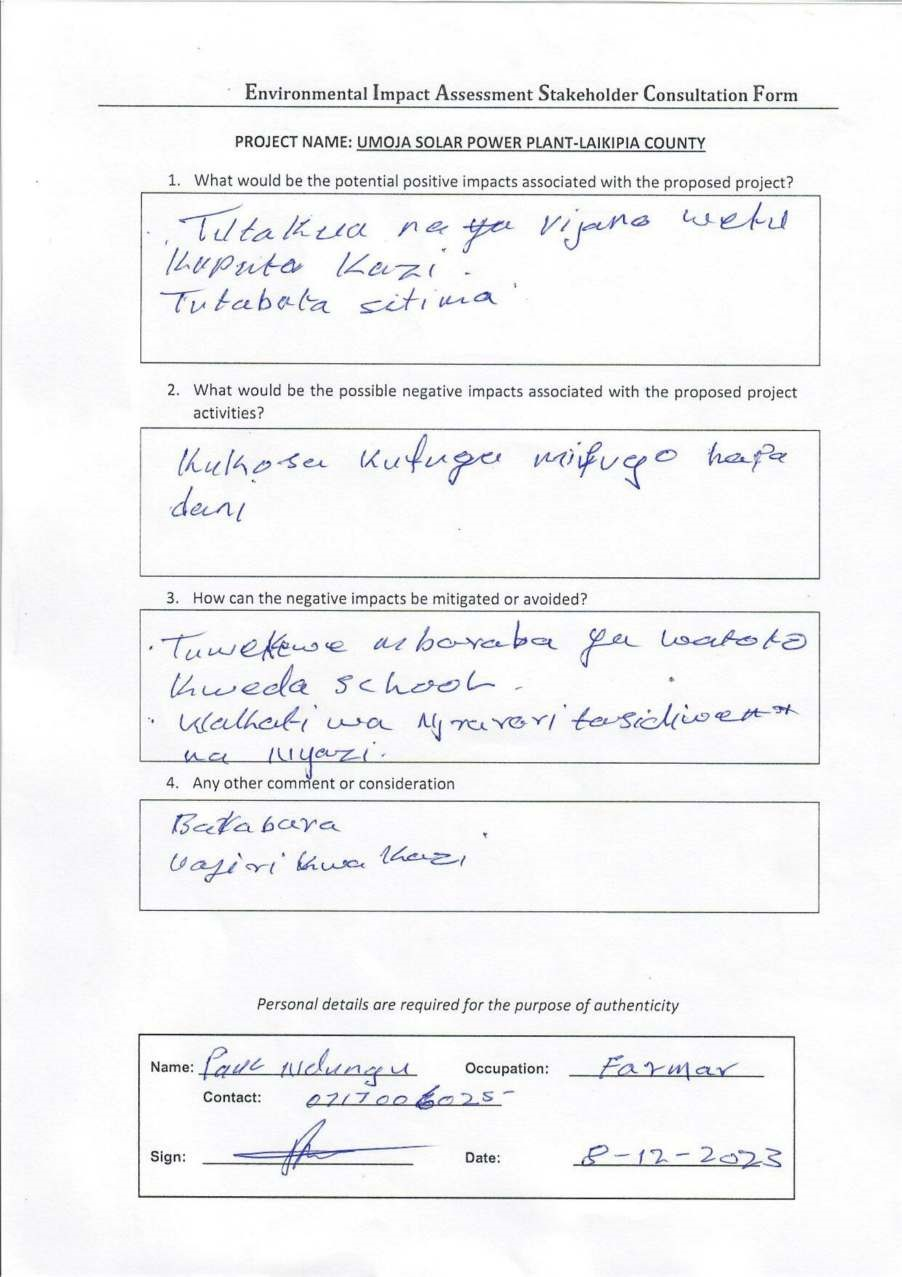 Environmental Impact Assessment Stakeholder Consultation Form
PROJECT NAME: UMOJA SOLAR POWER PLANT-LAIKIPIA COUNTY
1. What would be the potential positive impacts associated with the proposed project?
Tutakua na ya vijana wetu
Kuputa Kazi.
Tutabata sitima
2. What would be the possible negative impacts associated with the proposed project
activities?
Kukosa Kufuga mifugo hapa
dani
3. How can the negative impacts be mitigated or avoided?
· Tuwekewe barabara ya watoto
Kweda school.
· wa tasidiwe
na Nyazi.
4. Any other comment or consideration
Batabara
Vajiri kwa Kazi
Personal details are required for the purpose of authenticity
Name: Paul Ndungu Occupation: Farmar
Contact: 0717006025
Sign: Date: 8-12-2023